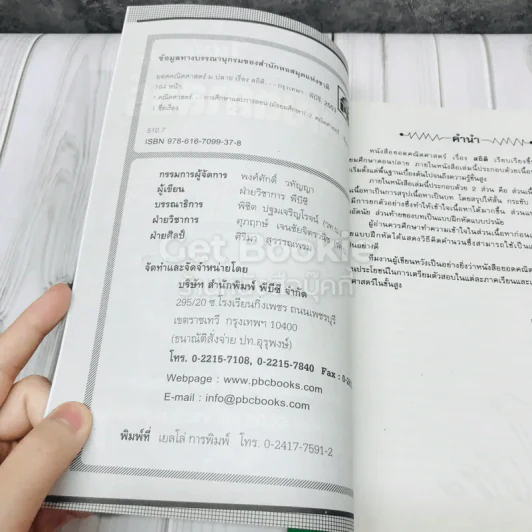 ข้อมูลทางบรรณานุกรมของสำนักหอสมุดแห่งชาติ
ยอดคณิตศาสตร์ ม.ปลาย เรื่อง สถิติ.-- กรุงเทพฯ : พีบีซี, 2553
164 หน้า.
1. คณิตศาสตร์ -- การศึกษาและการสอน (มัธยมศึกษา). 2. คณิตศาสตร์
I. ชื่อเรื่อง.
510.7
ISBN 978-616-7099-37-8
กรรมการผู้จัดการ พงศ์ศักดิ์ วทัญญา
ผู้เขียน ฝ่ายวิชาการ พีบีซี
บรรณาธิการ พิชิต ปฐมเจริญโรจน์
ฝ่ายวิชาการ ศุภฤกษ์
ฝ่ายศิลป์ ศิริมา สุวรรณพรม
จัดทำและจัดจำหน่ายโดย
บริษัท สำนักพิมพ์ พีบีซี จำกัด
295/20 ซ.โรงเรียนกิ่งเพชร ถนนเพชรบุรี
เขตราชเทวี กรุงเทพฯ 10400
(ธนาณัติสั่งจ่าย ปท.อุรุพงษ์)
โทร. 0-2215-7108, 0-2215-7840 Fax :
Webpage : www.pbcbooks.com
E-mail : info@pbcbooks.com
พิมพ์ที่ เยลโล่ การพิมพ์ โทร. 0-2417-7591-2
คำนำ
หนังสือยอดคณิตศาสตร์ เรื่อง สถิติ เรียบเรียงขึ้น
มัธยมศึกษาตอนปลาย ภายในหนังสือเล่มนี้ประกอบด้วยเนื้อ
เริ่มตั้งแต่พื้นฐานเบื้องต้นไปจนถึงความรู้ขั้นสูง
ภายในหนังสือเล่มนี้ประกอบด้วย 2 ส่วน คือ ส่วน
เนื้อหาเป็นการสรุปเนื้อหาเป็นบท โดยสรุปให้สั้น กระชับ
มีการยกตัวอย่างซึ่งทำให้เข้าใจเนื้อหาได้มากขึ้น ส่วน
อัตนัย ส่วนท้ายของบทเป็นแบบฝึกหัดแบบปรนัย
ผู้อ่านควรศึกษาทำความเข้าใจในส่วนเนื้อหาก่อน
แบบฝึกหัดได้แสดงวิธีคิดคำนวนซึ่งสามารถใช้เป็น
อย่างดี
ทีมงานผู้เขียนหวังเป็นอย่างยิ่งว่าหนังสือยอดคณิต
ประโยชน์ในการเตรียมตัวสอบในแต่ละภาคเรียนและ
ศาสตร์ในขั้นสูง
Get Bookie